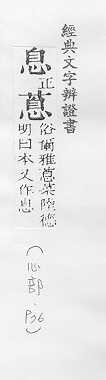 經典文字辨證書
息正蒠俗爾雅蒠菜陸德
明曰本又作息
（心部．P36）